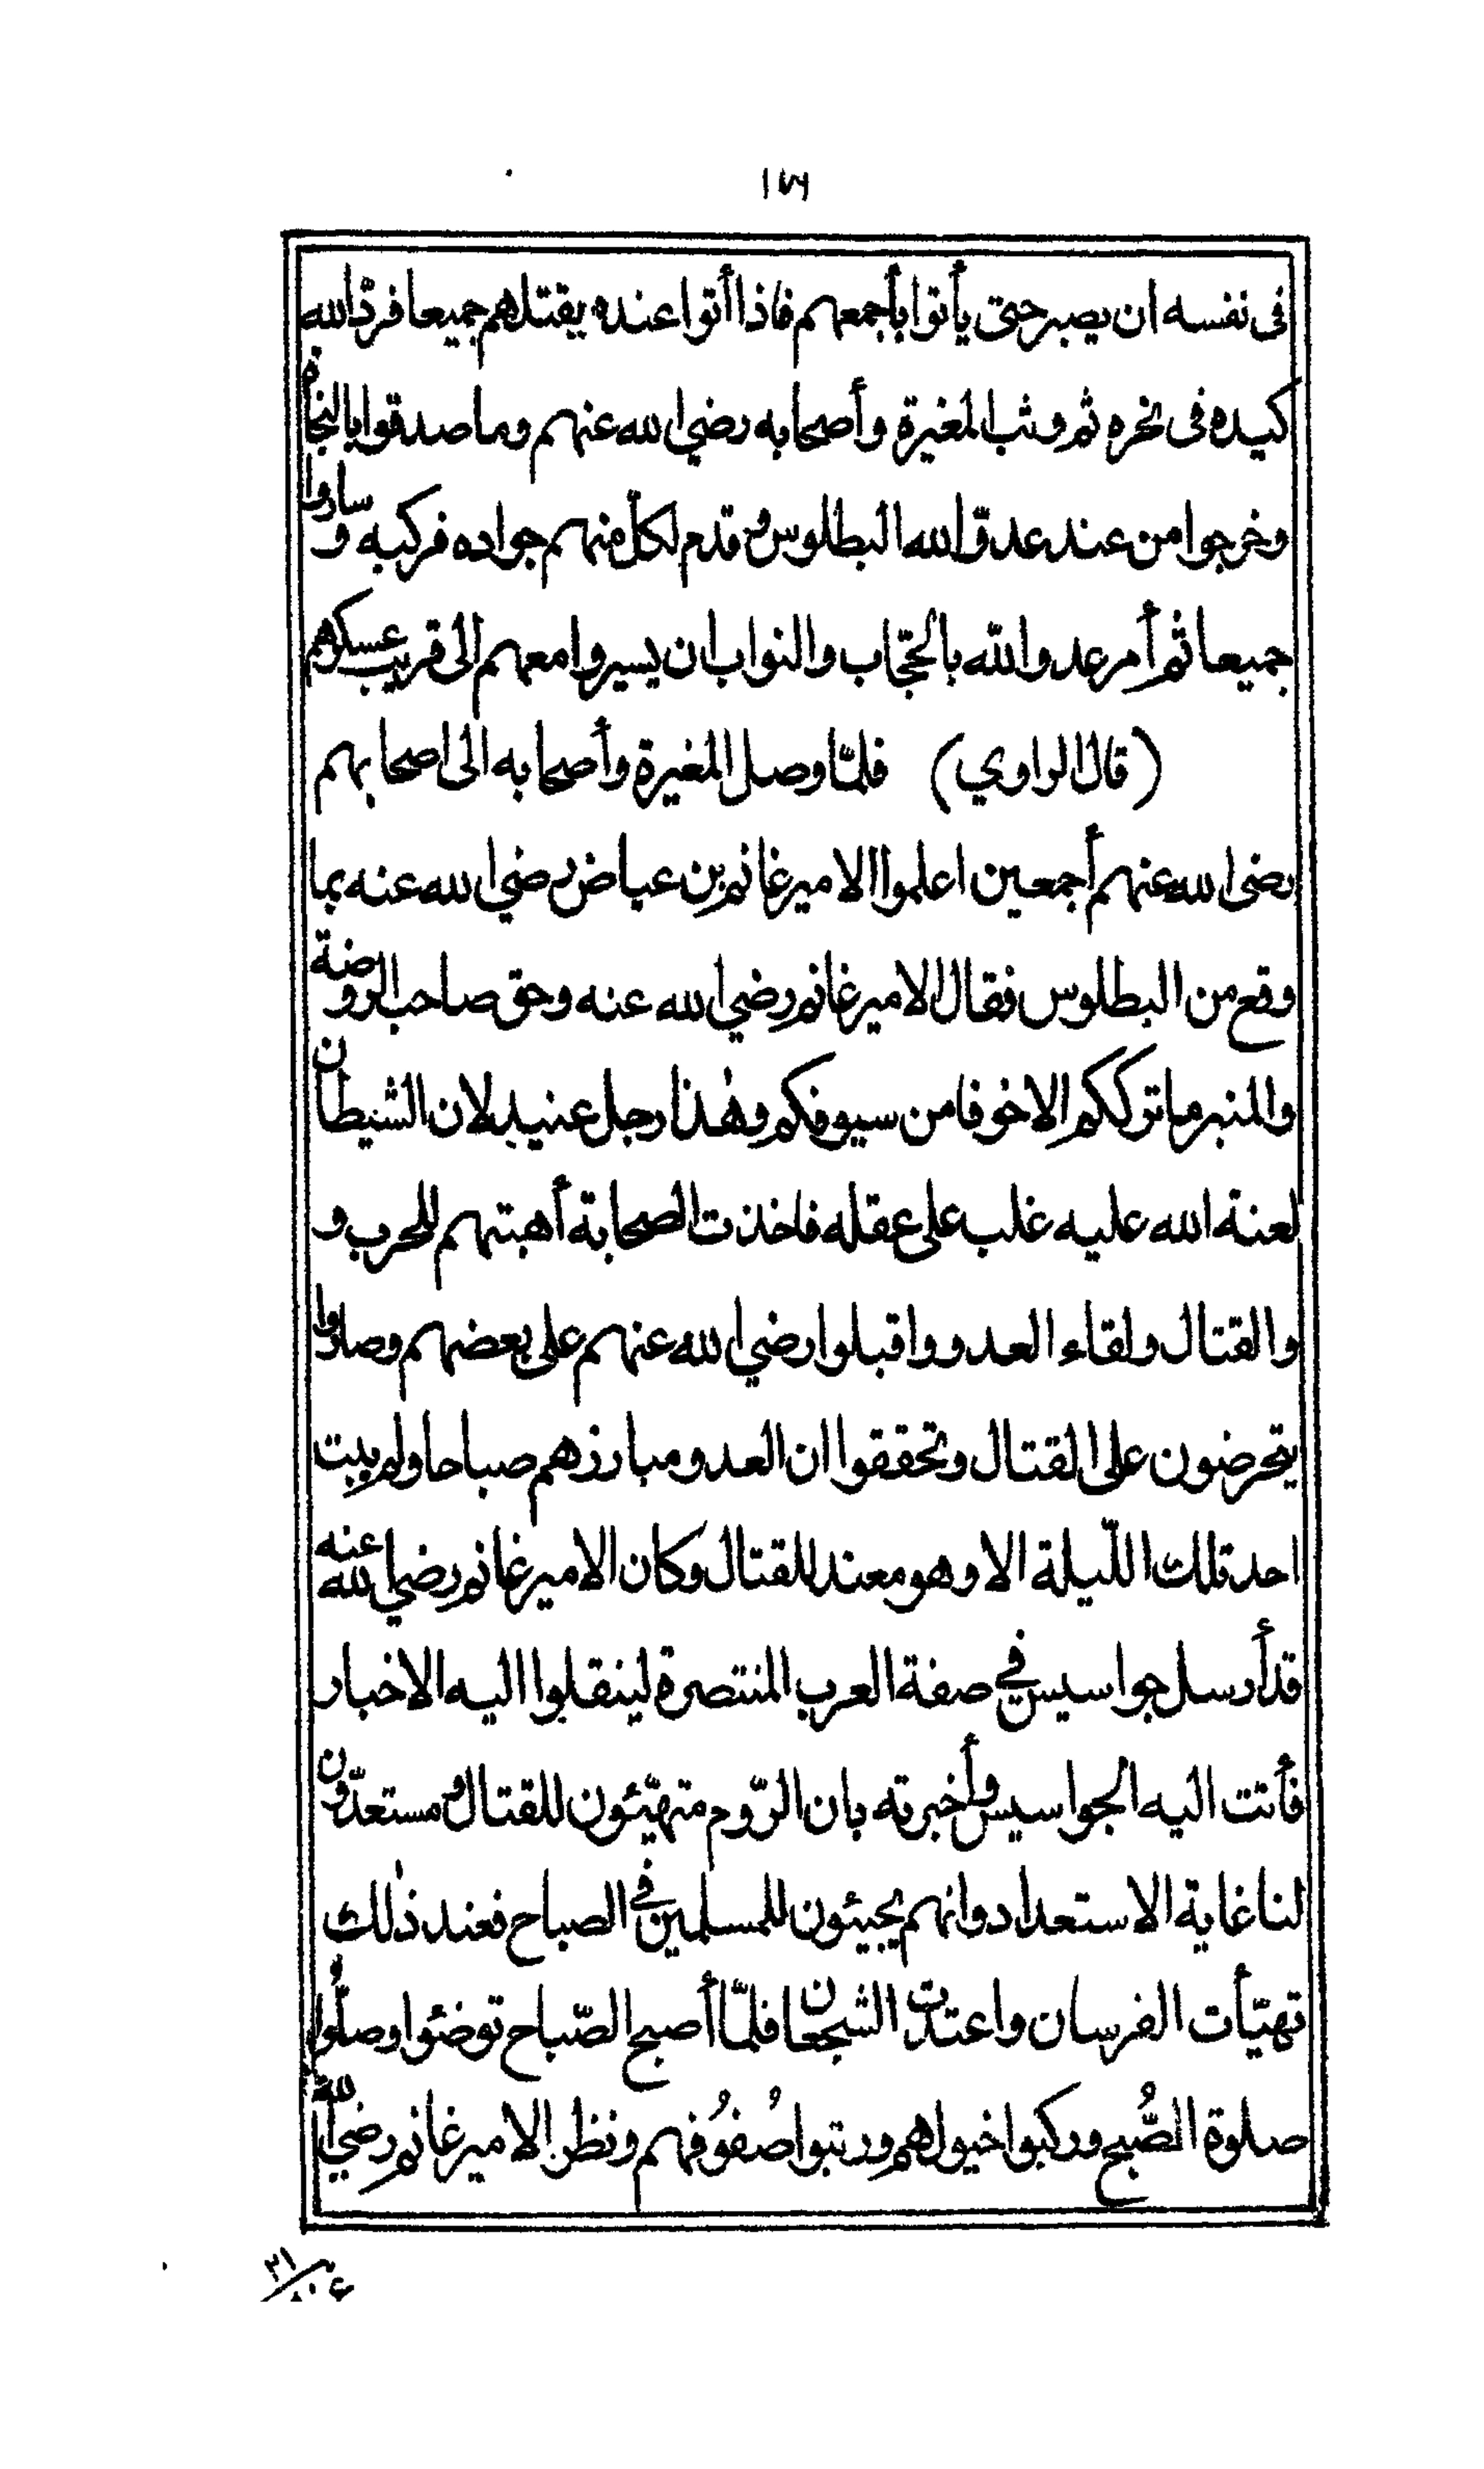 ١٧٦
فى نفسه ان يصبر حتى يأتوا بأجمعهم فاذا أتوا عنده يقتلهم جميعا فردّ الله
كيده فى نحره ثم وثب المغيرة وأصحابه رضي الله عنهم وما صدقوا بالنجاة
وخرجوا من عند عدوّ الله البطلوس وقدم لكلّ منهم جواده فركبه وساروا
جميعا ثم أمر عدو الله بالحجّاب والنواب ان يسيروا معهم الى قريب عسكرهم
(قال الراوي) فلمّا وصل المغيرة وأصحابه الى اصحابهم
رضى الله عنهم أجمعين اعلموا الامير غانم بن عياض رضي الله عنه بما
وقع من البطلوس فقال الامير غانم رضي الله عنه وحق صاحب الروضة
والمنبر ما ترككم الا خوفا من سيوفكم وهٰذا رجل عنيد لان الشيطان
لعنة الله عليه غلب على عقله فاخذت الصحابة أهبتهم للحرب و
والقتال ولقاء العدو واقبلوا رضي الله عنهم على بعضهم وصاروا
يتحرضون على القتال وتحققوا ان العدو مبارزهم صباحا ولم يبت
احد تلك اللّيلة الا وهو معند للقتال وكان الامير غانم رضي الله عنه
قد أرسل جواسيس في صفة العرب المنتصرة لينقلوا اليه الاخبار
فأتت اليه الجواسيس وأخبرته بان الرّوم متهيّئون للقتال ومستعدّون
لنا غاية الاستعداد وانهم يجيئون للمسلمين في الصباح فعند ذٰلك
تهيّأت الفرسان واعتدت الشجعان فلمّا أصبح الصّباح توضئوا وصلُّوا
صلوة الصُّبح وركبوا خيولهم ورتبوا صُفوُفهم ونظر الامير غانم رضي الله